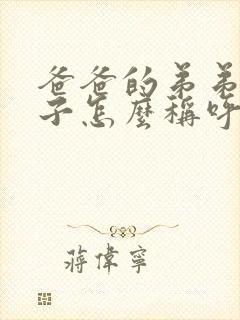 爸爸的弟弟
子怎麼稱呼
蔣偉寧